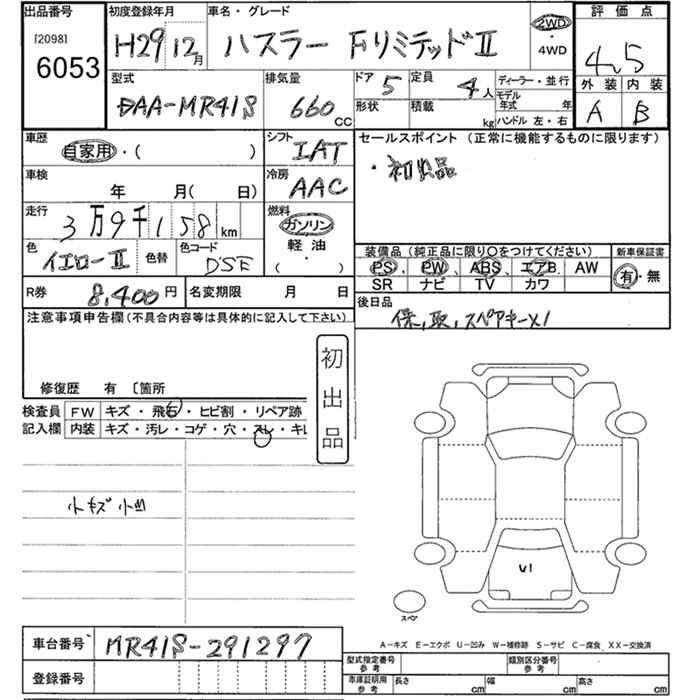 出品番号 初度登録年月 車名・グレード 2WD 評価点
[2098] H29 12月 ハスラー Fリミテッド Ⅱ ・4WD 4.5
6053
型式 排気量 ドア 5 定員 4人 ディーラー・並行 外装 内装
DAA-MR41S 660 CC 形状 積載 kg モデル年式 年 A B
ハンドル 左・右
車歴 シフト セールスポイント (正常に機能するものに限ります)
自家用・( ) IAT ・初出品
車検 冷房
年 月( 日) AAC
走行 燃料
3万9千158km ガソリン
色 色替 色コード 軽油 装備品(純正品に限り〇をつけてください) 新車保証書
イエローⅡ DSE ( ) PS・PW、ABS・エアB、AW 有・無
SR ナビ TV カワ
R券 8,400円 名変期限 月 日 後日品
注意事項申告欄(不具合内容等は具体的に記入して下さい) 保,取,スペアキー×1
初出品
修復歴 有 〔箇所
検査員 FW キズ・飛石・ヒビ割・リペア跡
記入欄 内装 キズ・汚レ・コゲ・穴・スレ・キレ
小キズ 小凹
U1
スペア
A-キズ E-エクボ U-凹み W-補修跡 S-サビ C-腐食 XX-交換済
車台番号 MR41S-291297 型式指定番号 参考 類別区分番号 参考
登録番号 車庫証明用 参考 長さ cm 幅 cm 高さ cm